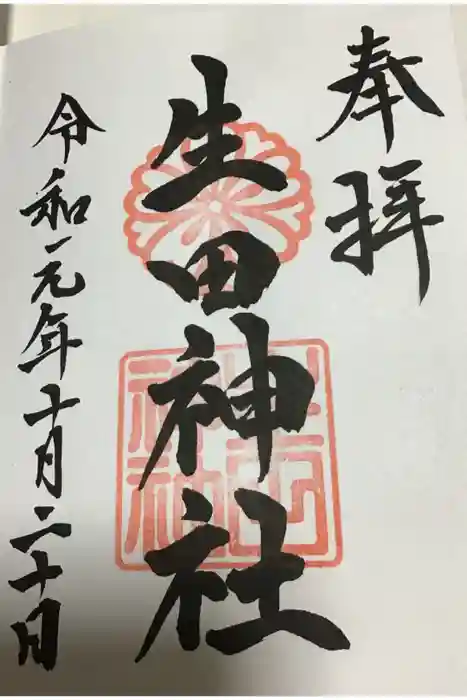 奉拝
生田神社
令和元年十月二十日